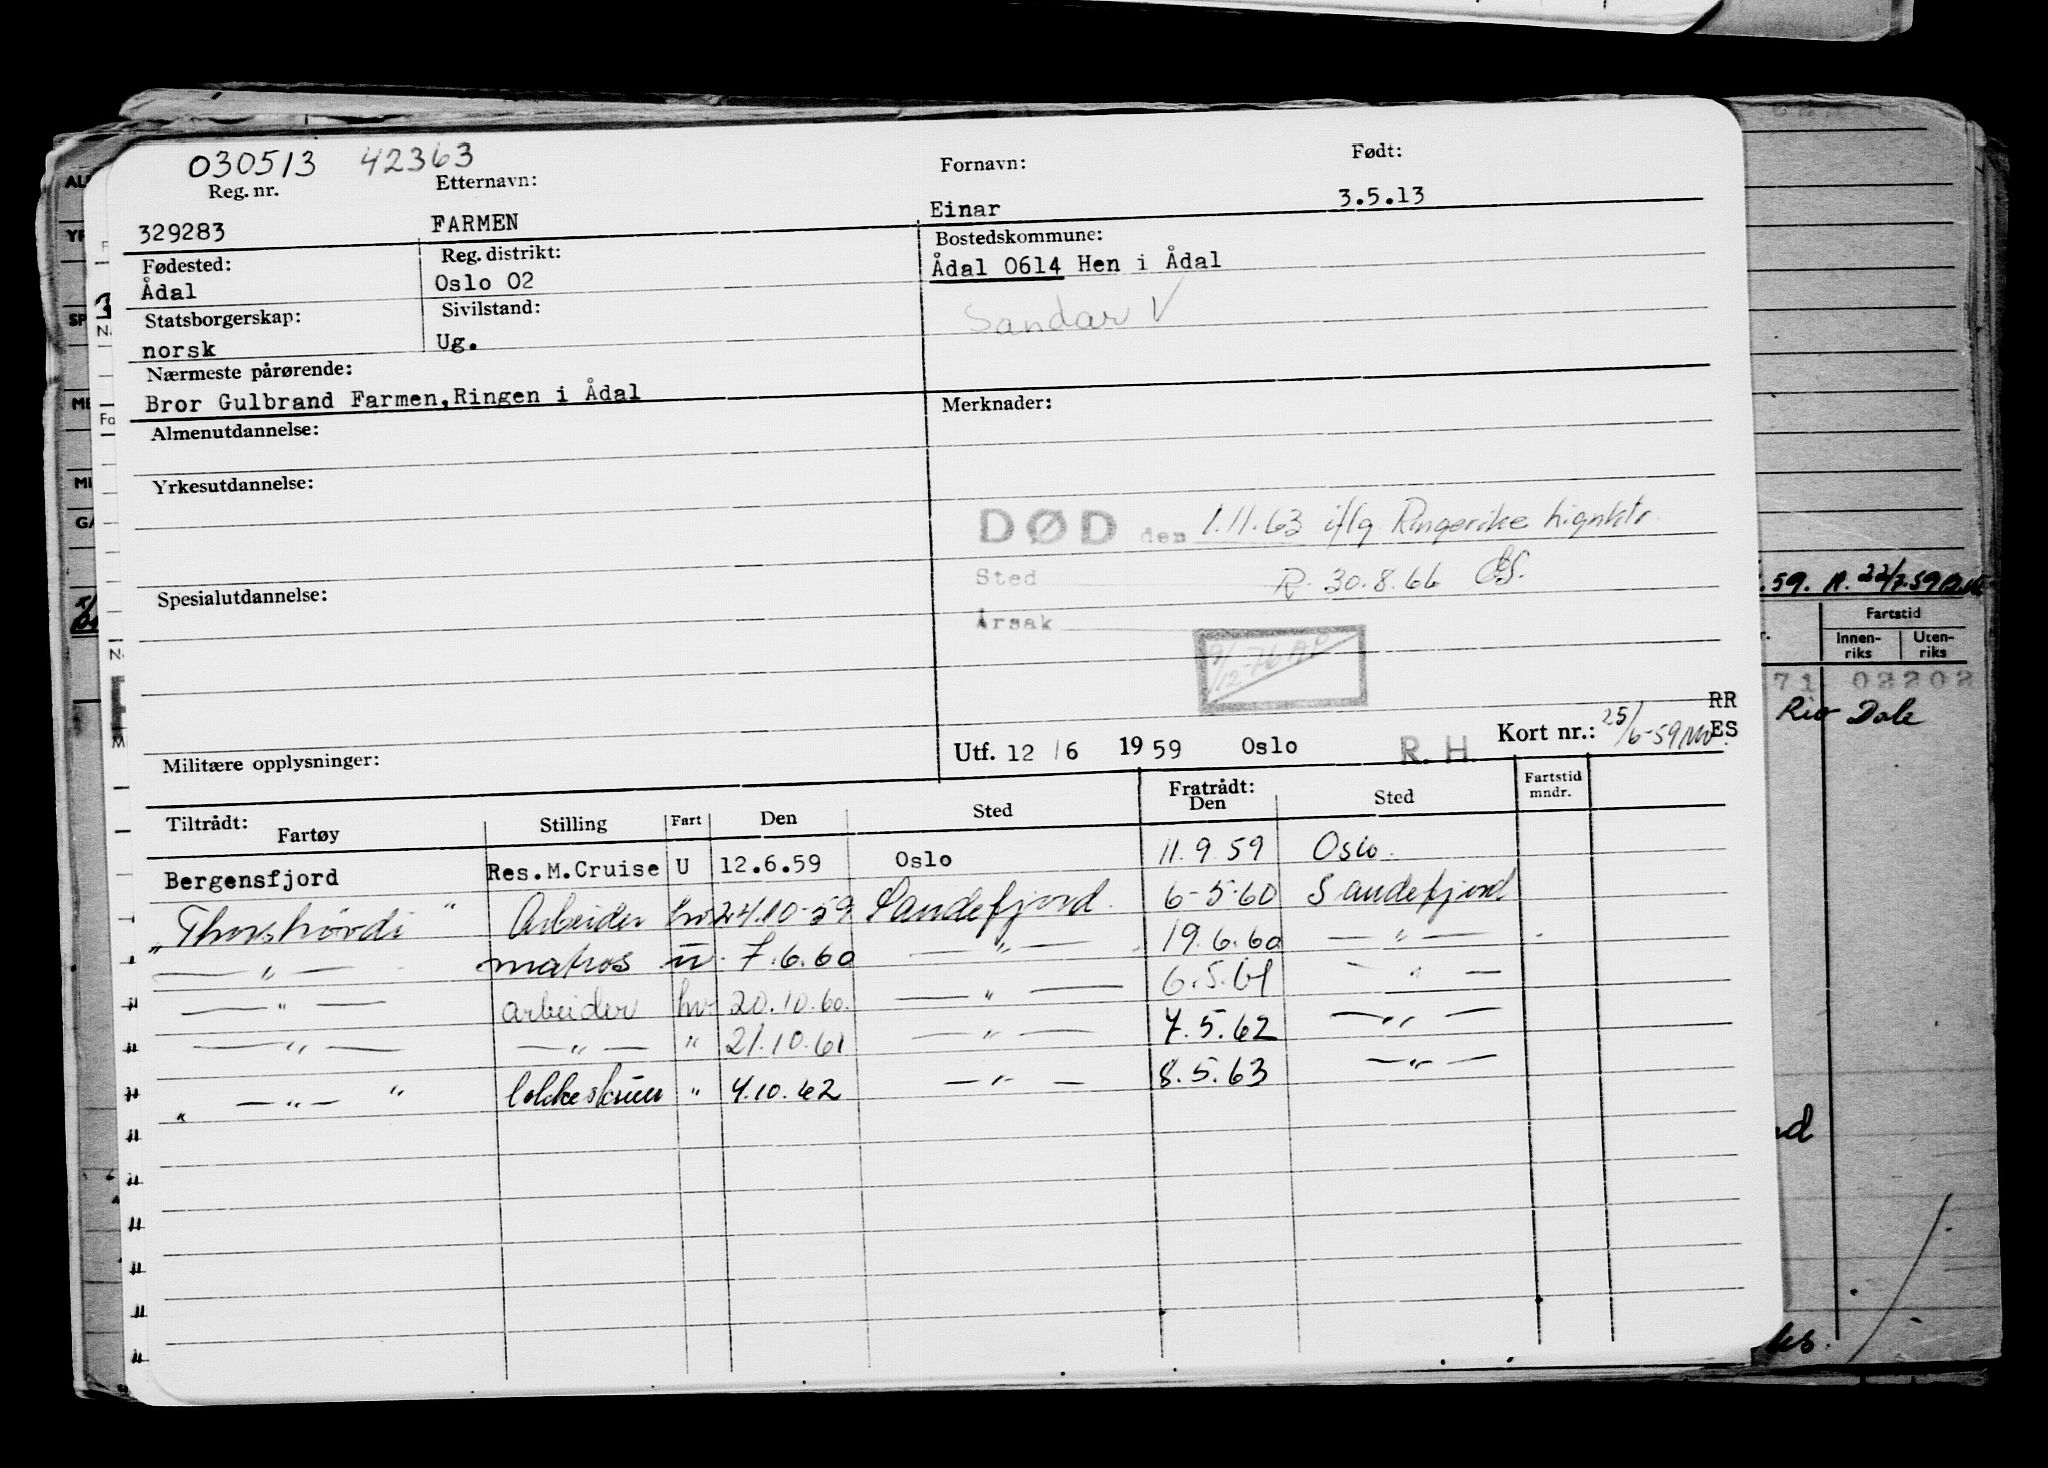 030513 42363
Reg. nr. Etternavn: Fornavn: Født:
329283 FARMEN Einar 3.5.13
Fødested: Reg. distrikt: Bostedskommune:
Ådal Oslo 02 Ådal 0614 Hen i Ådal
Statsborgerskap: Sivilstand: Sandar V
norsk Ug.
Nærmeste pårørende:
Bror Gulbrand Farmen,Ringen i Ådal
Almenutdannelse: Merknader:
Yrkesutdannelse:
DØD den 1.11.63 iflg Ringerike
Sted R. 30.8.66
Spesialutdannelse:
Årsak
9/12-76
RR
Militære opplysninger: Utf. 12/6 1959 Oslo R.H. Kort nr.: 25/6-59 ES
Tiltrådt: Fratrådt:
Fartøy Stilling Fart Den Sted Den Sted Fartstid mndr.
Bergensfjord Res.M.Cruise U 12.6.59 Oslo 11.9.59 Oslo.
"Thorshövdi" Arbeider hv 24.10-59 Sandefjord. 6-5-60 Sandefjord
— " — matros u. 7.6.60 — " — 19.6.60 — " —
— " — arbeider hv. 20.10.60. — " — 6.5.61 — " —
— " — — " — " 21.10.61 — " — 7.5.62 — " —
" — " — " " 4.10.62 — " — 8.5.63 — " —
.59. A. 22/7.59
Fartstid
Innen-riks Uten-riks
71 02202
Rio Dale